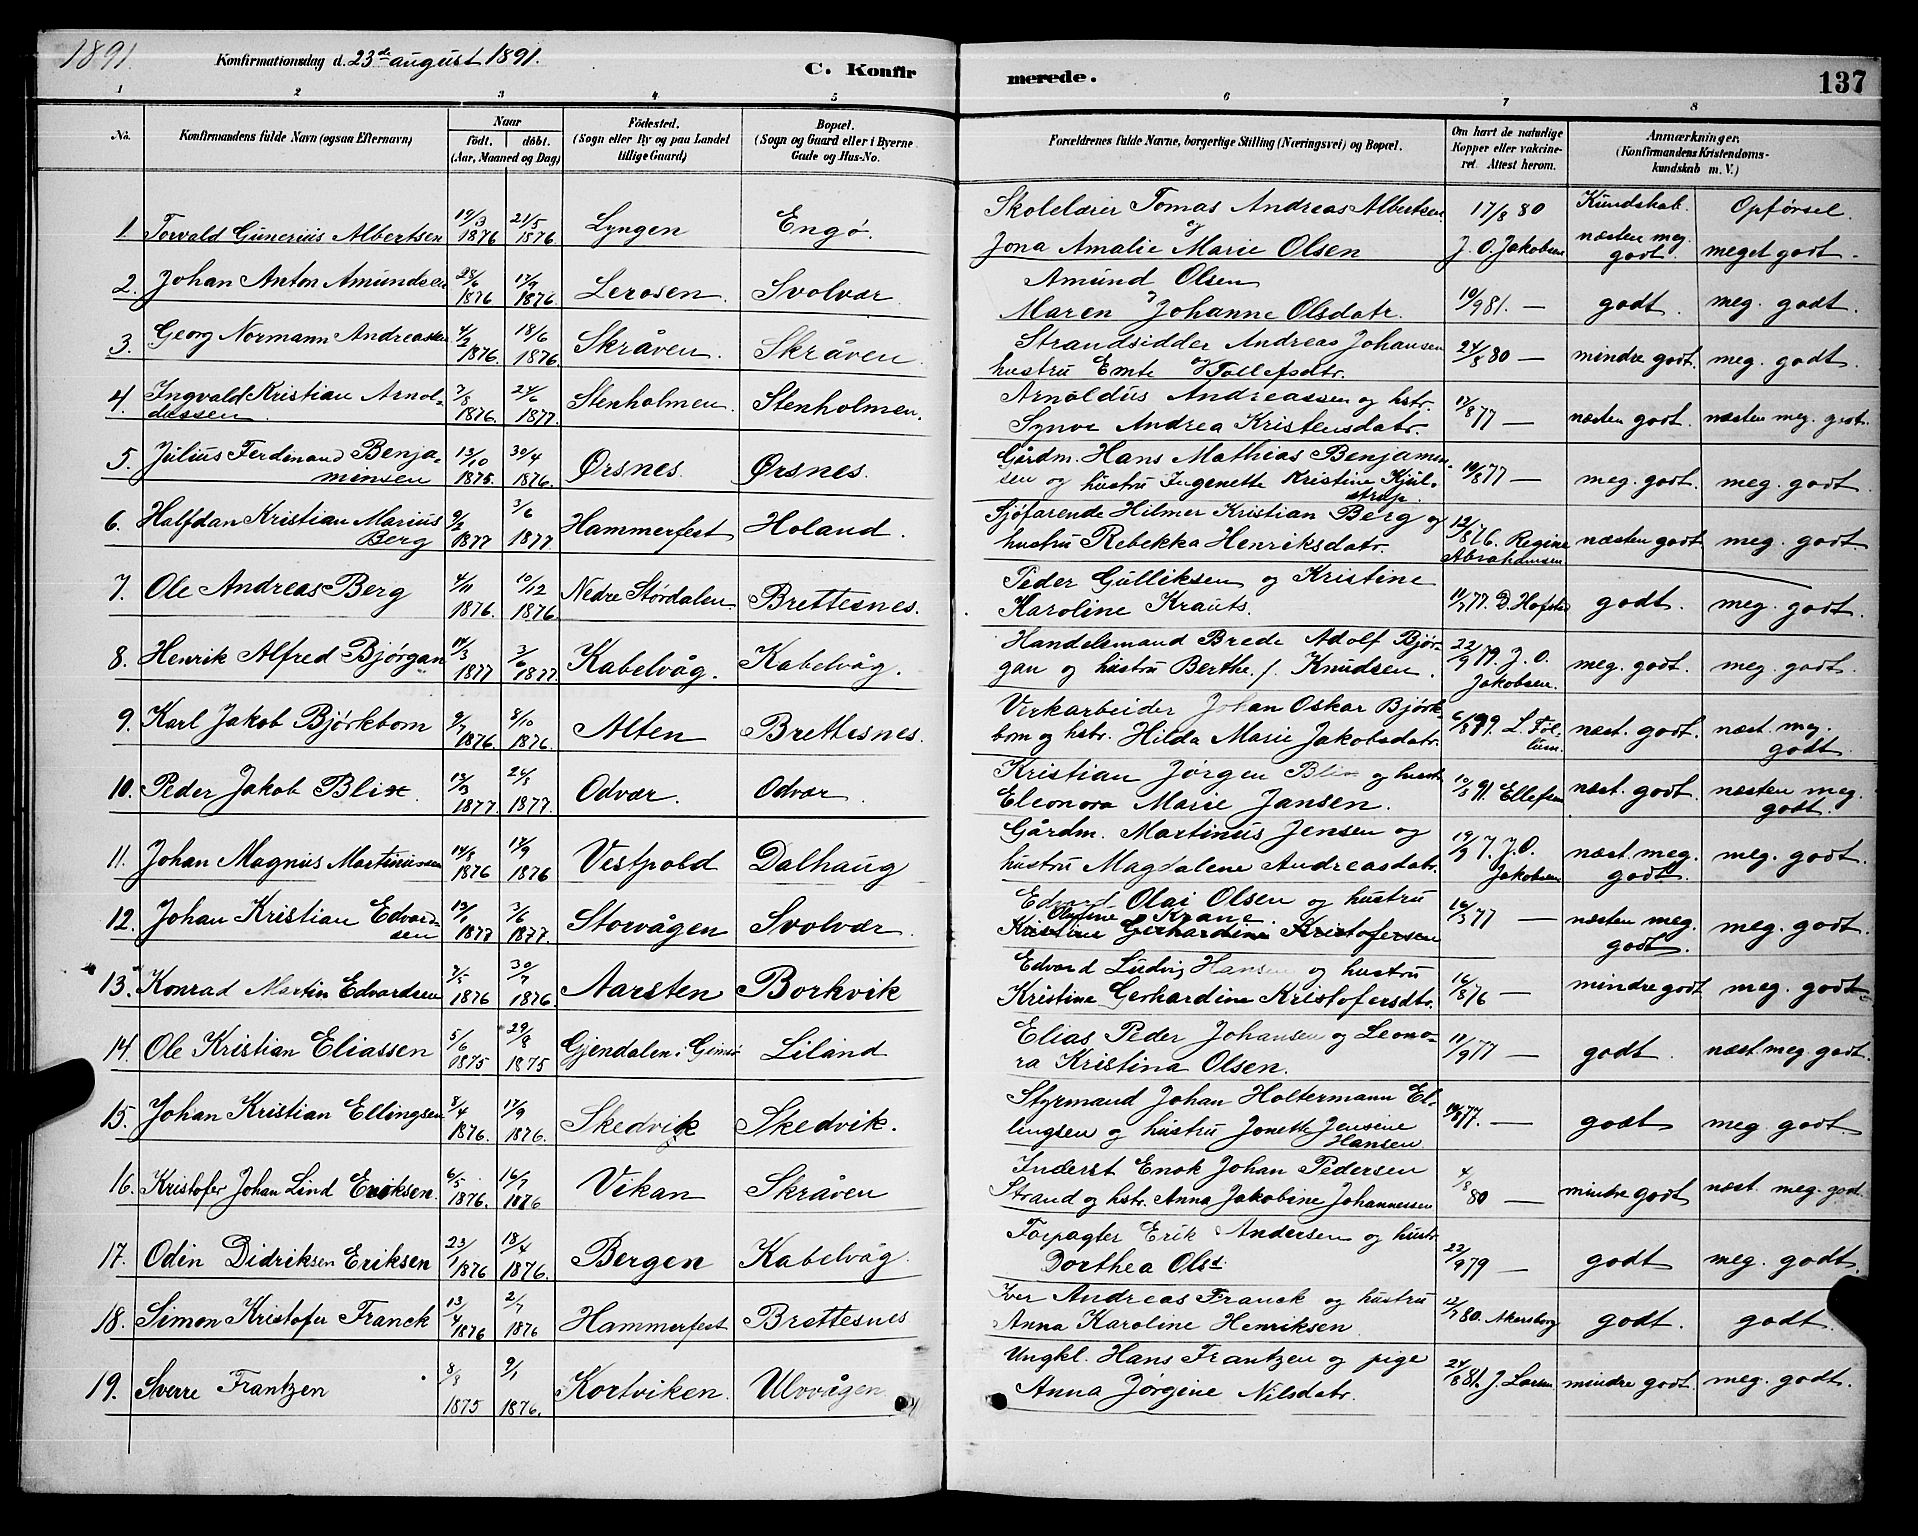 1891. Konfirmationsdag d. 23de august 1891. C. Konfir merede. 137
1 2 3 4 5 6 7 8
No. Konfirmandens fulde Navn (ogsaa Efternavn) Naar født. døbt. (Aar, Maaned og Dag) Fødested. (Sogn eller By og paa Landet tillige Gaard) Bopæl. (Sogn og Gaard eller i Byerne Gade og Hus-No. Forældrenes fulde Navne, borgerlige Stilling (Næringsvei) og Bopæl. Om havt de naturlige Kopper eller vakcineret. Attest herom. Anmærkninger. (Konfirmandens Kristendomskundskab m. V.)
Kundskab. Opførsel.
1. Torvald Gunerius Albertsen 19/3 1876 21/5 1876 Lyngen Engø. Skolelærer Tomas Andreas Albertsen og
Jona Amalie Marie Olsen 17/8 80 J. O. Jakobsen næsten meg. godt meget godt.
2. Johan Anton Amundsen 28/6 1876 17/9 1876 Lerosen. Svolvær. Amund Olsen
Maren Johanne Olsdatr. 10/9 81. — godt meg. godt
3. Georg Normann Andreassen 4/2 1876. 18/6 1876. Skråven. Skråven. Strandsidder Andreas Johansen
hustru Emte Tollefsdtr. 24/8 80 — mindre godt. meg. godt.
4. Ingvald Kristian Arnoldussen 3/8 1876. 24/6 1877. Stenholmen. Stenholmen. Arnoldus Andreassen og hstr.
Synve Andrea Kristensdatr. 17/8 77 — næsten godt. næsten meg. godt.
5. Julius Ferdinand Benjaminsen 13/10 1875. 30/4 1876. Ørsnes. Ørsnes. Gårdm. Hans Mathias Benjaminsen
og hustru Ingenette Kristine Kjulstrup. 10/8 77 — meg. godt. meg. godt.
6. Halfdan Kristian Marius Berg 9/2 1877 3/6 1877. Hammerfest Holand. Sjøfarende Hilmer Kristian Berg og
hustru Rebekka Henriksdatr. 12/8 76. Regine Abrahamsen næsten godt meg. godt.
7. Ole Andreas Berg 4/11 1876. 10/12 1876 Nedre Størdalen Brettesnes. Peder Gulliksen og Kristine
Karoline Krauts. 11/7 77. D. Hofstad godt. meg. godt.
8. Henrik Alfred Bjørgan 14/3 1877 3/6 1877 Kabelvåg. Kabelvåg. Handelsmand Brede Adolf Bjørgan
og hustru Berthe f. Knudsen. 22/9 79. J. O. Jakobsen. meg. godt. meg. godt.
9. Karl Jakob Bjørkbom 9/7 1876 8/10 1876. Alten Brettesnes. Verkarbeider Johan Oskar Bjørkbom
og hstr. Hilda Marie Jakobsdatr. 6/8 79. L. næst. godt. næst. meg. godt.
10. Peder Jakob Blix. 13/3 1877. 24/8 1877. Odvær. Odvær. Kristian Jørgen Blix og hustr
Eleonora Marie Jansen. 10/8 91. Ellefsen næst. godt næsten meg. godt.
11. Johan Magnus Martinussen 14/8 1876 17/9 1876 Vestpold Dalhaug Gårdm. Martinus Jensen og
hustru Magdalene Andreasdatr. J. O. Jakobsen næst. meg. godt. meg. godt.
12. Johan Kristian Edvardsen 12/1 1877 3/6 1877. Storvågen Svolvær. Edvard Olai Olsen og hustru
Olufine Krane.
Kristine Gerhardine Kristofersen 16/5 77 — næsten meg. godt. meg. godt.
13. Konrad Martin Edvardsen 3/5 1876 30/7 1876. Aarsten Borkvik Edvard Ludvig Hansen og hustru
Kristine Gerhardine Kristofersdtr. 16/8 76 — mindre godt meg. godt
14. Ole Kristian Eliassen 5/6 1875 29/8 1875 Gjendalen i Gimsø Liland Elias Peder Johansen og Leonora
Kristina Olsen. 11/9 77 — godt. næst. meg. godt.
15. Johan Kristian Ellingsen 8/4 1876. 17/9 1876. Skedvik Skedvik. Styrmand Johan Holtermann Ellingsen
og hustru Jonette Jensine Hansen 10/8 77. — godt meg. godt.
16. Kristofer Johan Lind Eriksen. 6/5 1876. 16/7 1876 Vikan Skråven Inderst Enok Johan Pedersen
Strand og hstr. Anna Jakobine Johannessen 4/8 80 — mindre godt næst. meg. godt.
17. Odin Didriksen Eriksen 23/1 1876 18/4 1876. Bergen Kabelvåg. Forpagter Erik Andersen og hustr.
Dorthea Olsd. 22/9 79 — godt meg. godt.
18. Simon Kristofer Franck 13/4 1876 2/7 1876 Hammerfest Brettesnes Iver Andreas Franck og hustru
Anna Karoline Henriksen. 12/7 80. Akersborg godt. godt.
19. Sverre Frantzen 8/8 1875 9/1 1876. Kortviken. Ulvvågen Ungkl. Hans Frantzen og pige
Anna Jørgine Nilsdatr. 24/8 81. J. Larsen mindre godt. meg. godt.